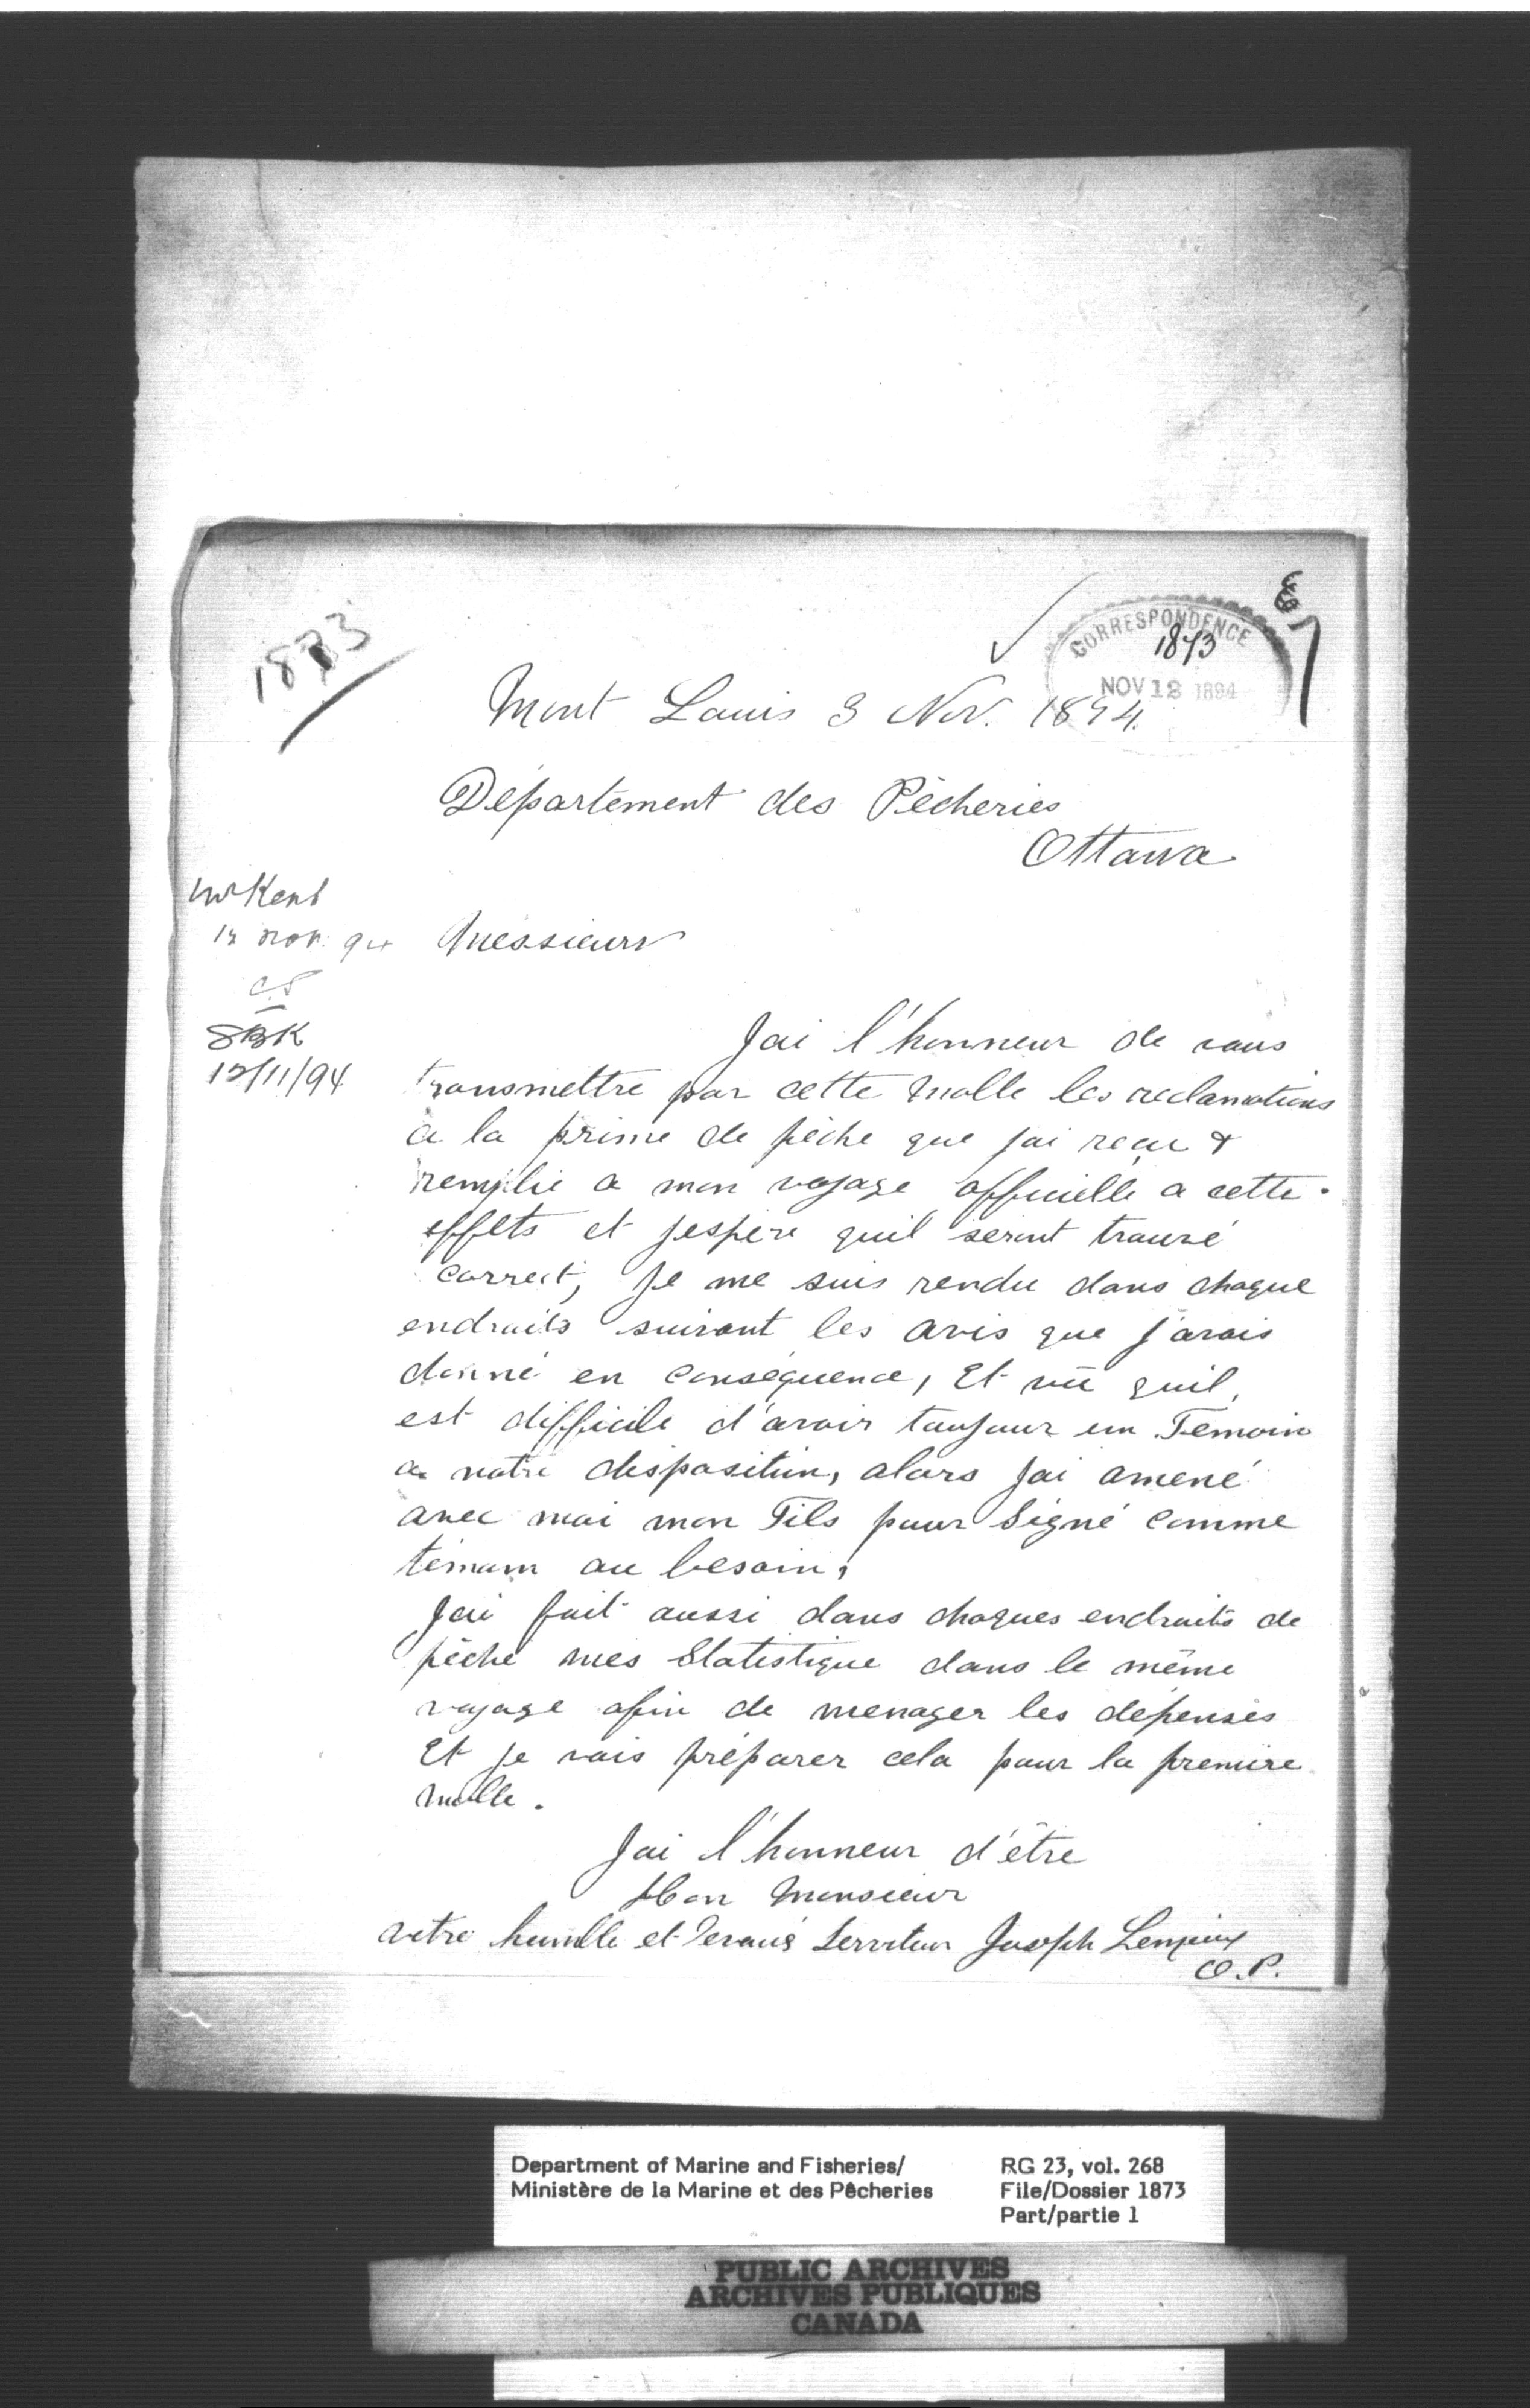 1873
CORRESPONDENCE
1873
NOV 12 1894
Mont Louis 3 Nov. 1894.
Département des Pêcheries
Ottawa
Mr Kent
12 nov. 94
C.S
SBK
12/11/94
Messieurs
Jai l'honneur de vous
transmettre par cette Malle les reclamations
a la prime de pêche que jai reçu &
remplie a mon voyage officielle a cette
effets et jespère quil seront trouvé
correct, je me suis rendu dans chaque
endroits suivant les avis que j'avais
donné en conséquence, Et vû quil,
est difficile d'avoir toujour un Témoin
a notre disposition, alors jai amené
avec moi mon Fils pour Signé comme
témoin au besoin,
Jai fait aussi dans chaques endroits de
pêche mes Statistique dans le même
voyage afin de menager les dépenses
Et je vais préparer cela pour la premiere
Malle.
Jai l'honneur d'être
Hon Monsieur
votre humble et Devoué Serviteur Joseph Lemieux
O.P.
Department of Marine and Fisheries/
Ministère de la Marine et des Pêcheries
RG 23, vol. 268
File/Dossier 1873
Part/partie 1
PUBLIC ARCHIVES
ARCHIVES PUBLIQUES
CANADA